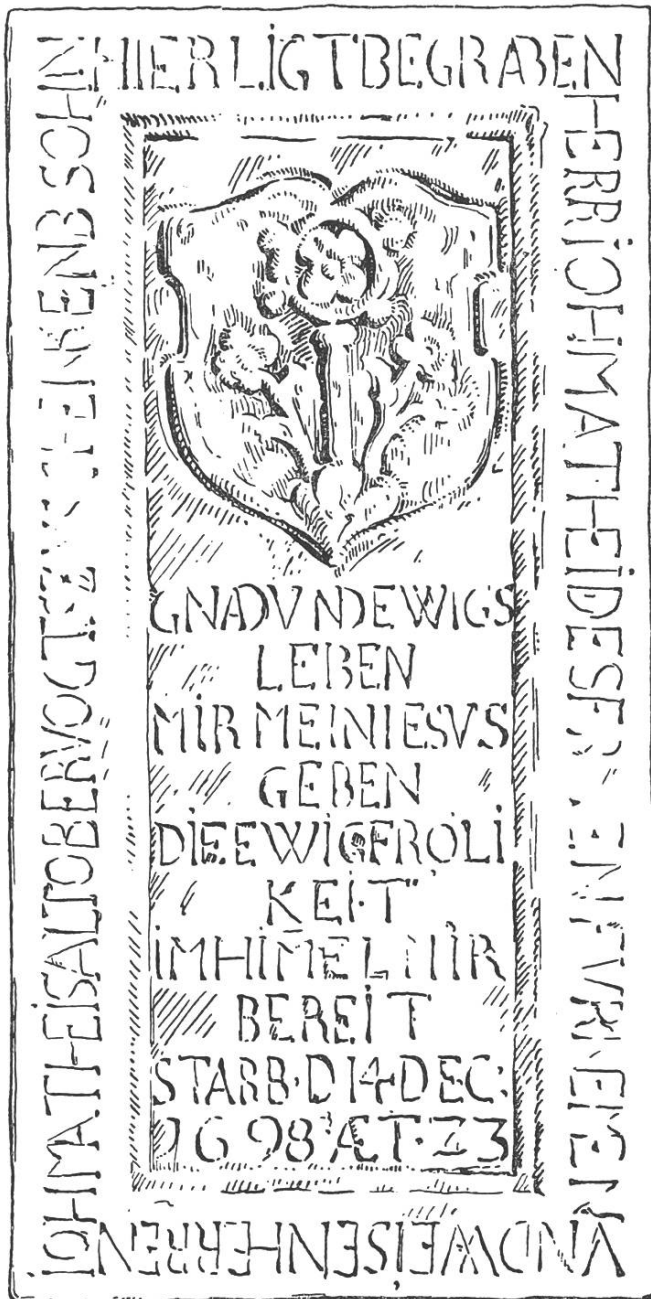 HIER LIGT BEGRABEN
HERR IOH MATHEI DES FVRNEMEN
VND WEISEN HERREN
IOH MATHEIS ALTOBERVOGTS SOHN
GNAD VND EWIGS
LEBEN
MIR MEIN IESVS
GEBEN
DIE EWIG FRÖLI
KEIT
IM HIM̄EL MIR
BEREIT
STARB·D 14 DEC:
1698 ÆT·23